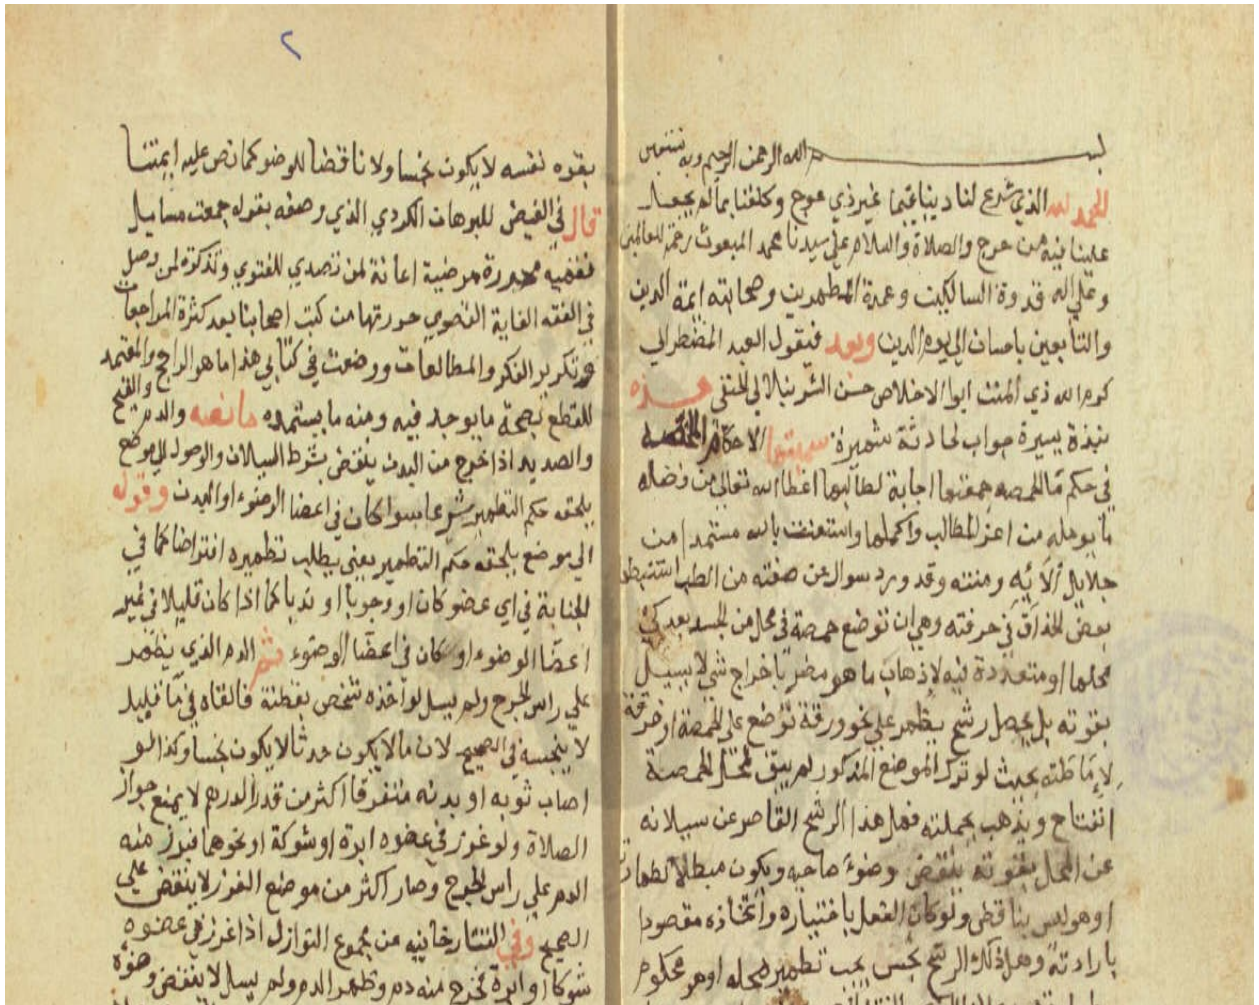 بسم الله الرحمن الرحيم وبه نستعين
الحمد لله الذي شرع لنا دينا قيما غير ذي عوج وكلفنا بما لم يجعل
علينا فيه من حرج والصلاة والسلام علي سيدنا محمد المبعوث رحمة للعالمين
وعلي اله قدوة السالكين وعمدة المطهرين وصحابته ايمة الدين
والتابعين باحسان الي يوم الدين وبعد فيقول العبد المضطر الي
كرم الله ذي المنن ابو الاخلاص حسن الشرنبلالي الحنفي هذه
نبذة يسيرة جواب لحادثة شهيرة سميتها الاحكام الملخصه
في حكم ما الحمصه جمعتها اجابة لطالبها اعطاه الله تعالي من فضله
ما يومله من اعز المطالب واكملها واستعنت بالله مستمدا من
جلايل آلايه ومننه وقد ورد سوال عن صفته من الطب استنبط
بعض الحذاق في حرفته وهي ان توضع حمصة في محل من الجسد بعد كي
محلها او متعددة فيه لاذهاب ما هو مضر باخراج شي لا يسيل
بقوته بل يحصل رشح يظهر علي نحو ورقة توضع علي الحمصة او خرقة
لاماطته بحيث لو ترك الموضع المذكور لم يبق لمحل الحمصة
انفتاح ويذهب بجملته فهل هذا الرشح القاصر عن سيلانه
عن المحل بقوته ينقض وضوء صاحبه ويكون مبطلا لطهارته
او هو ليس بناقض ولو كان الفعل باختياره واتخاذه مقصودا
بارادته وهل ذلك الرشح نجس يجب تطهير محله او هو محكوم
٢
بقوه نفسه لا يكون نجسا ولا ناقضا للوضو كما نص عليه ايمتنا
قال في الفيض للبرهان الكركي الذي وصفه بقوله جمعت مسايل
فقهيه محررة مرضية اعانة لمن تصدي للفتوي وتذكرة لمن وصل
في الفقه الغاية القصوي حررتها من كتب اصحابنا بعد كثرة المراجعات
وتكرير الفكر والمطالعات ووضعت في كتابي هذا ما هو الراجح والمعتمد
للقطع بصحة ما يوجد فيه ومنه ما يستمده ما نصه والدم والقيح
والصديد اذا خرج من البدن ينقض بشرط السيلان والوصول الي موضع
يلحقه حكم التطهير شرعا سوا كان في اعضا الوضوء او البدن وقوله
الي موضع يلحقه حكم التطهير يعني يطلب تطهيره افتراضا كما في
الجنابة في اي عضو كان او وجوبا او ندبا كما اذا كان قليلا في غير
اعضا الوضوء او كان في اعضا الوضوء ثم الدم الذي يظهر
علي راس الجرح ولم يسل لو اخذه شخص بقطنة فالقاه في ما قليل
لا ينجسه في الصحيح لان ما لا يكون حدثا لا يكون نجسا وكذا لو
اصاب ثوبه او بدنه متفرقا اكثر من قدر الدرهم لا يمنع جواز
الصلاة ولو غرز في عضوه ابرة او شوكة او نحوهما فبرز منه
الدم علي راس الجرح وصار اكثر من موضع الغرز لا ينقض علي
الصحيح وفي التتارخانيه من مجموع النوازل اذا غرز في عضوه
شوكا او ابرة فخرج منه دم وظهر الدم ولم يسل لا ينقض وضوه